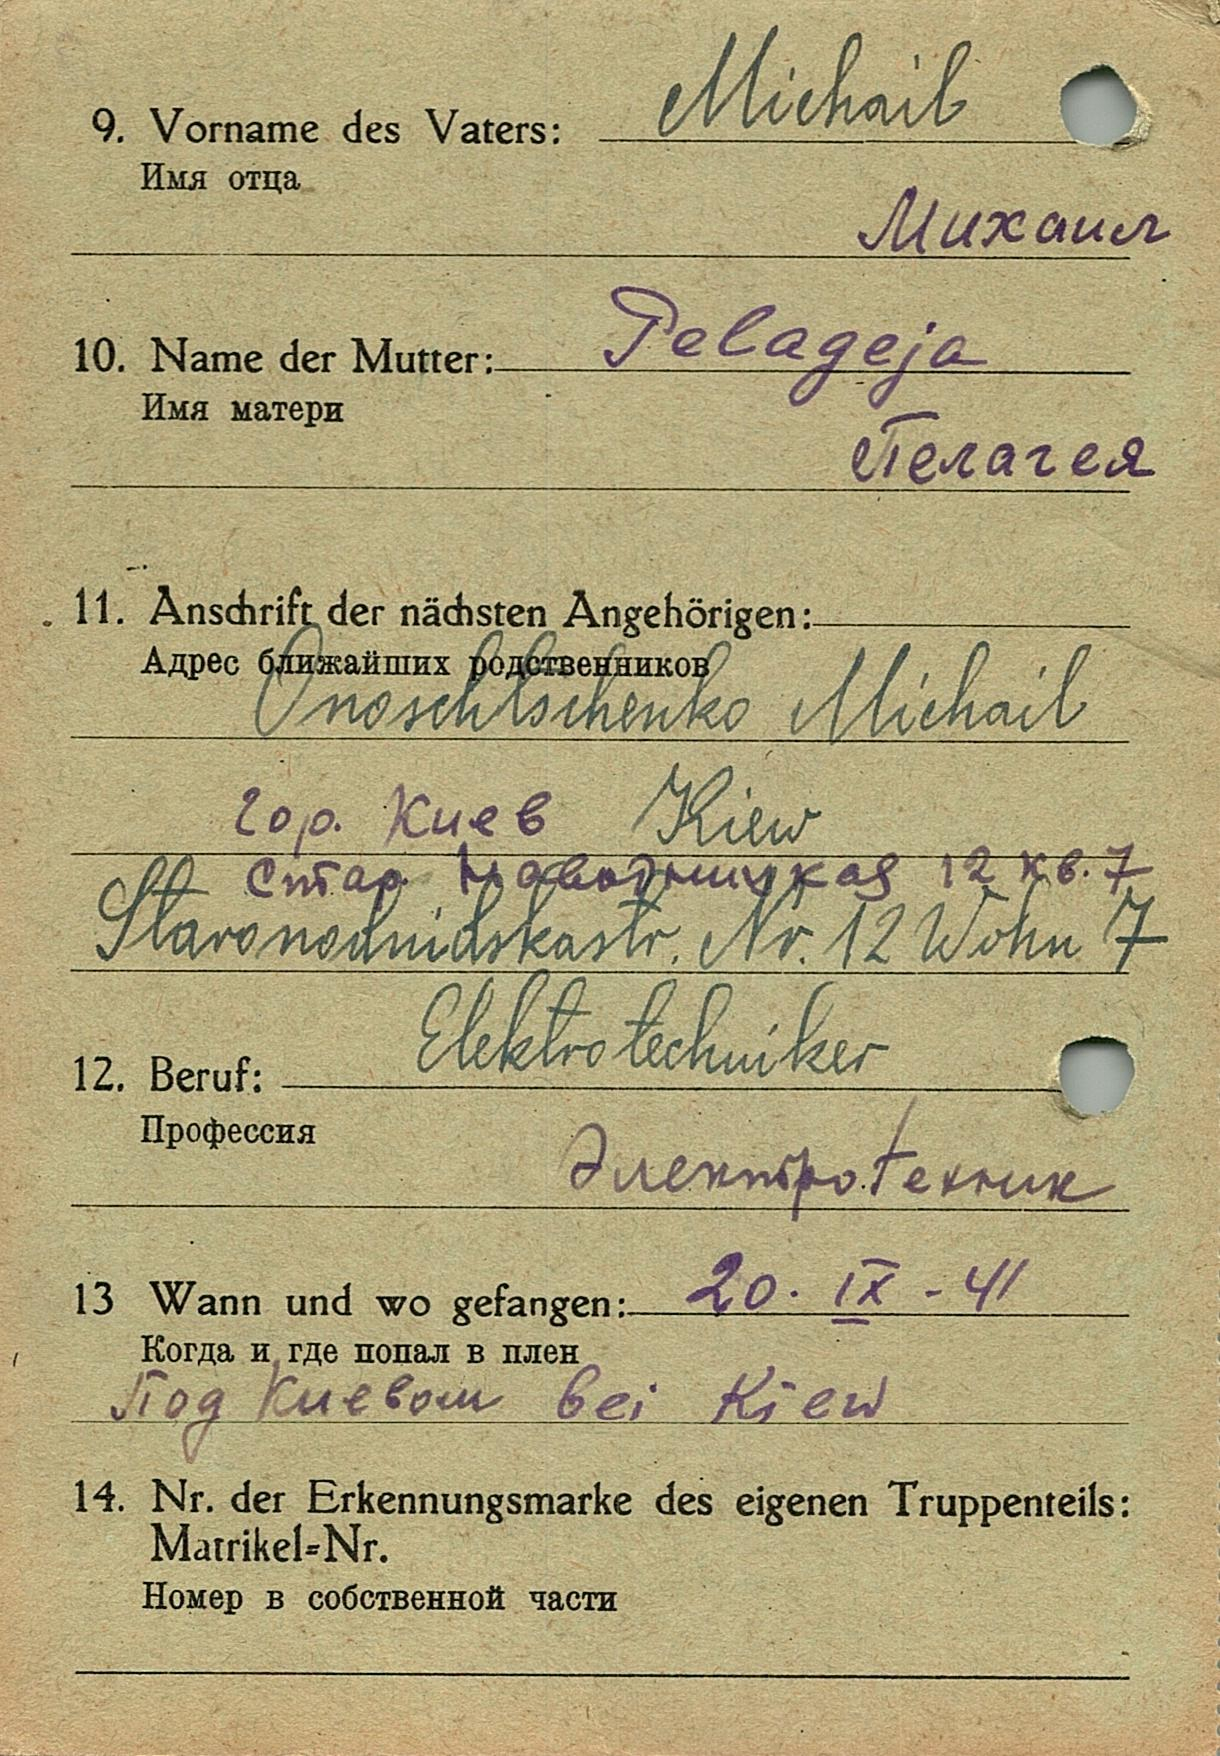 9. Vorname des Vaters: Michail
Имя отца
Михаил
10. Name der Mutter: Pelageja
Имя матери
Пелагея
11. Anschrift der nächsten Angehörigen:
Адрес ближайших родственников
Onoschtschenko Michail
гор. Киев Kiew
Стар. Наводницкая 12 кв. 7
Staronodnidskastr. Nr. 12 Wohn 7
12. Beruf: Elektrotechniker
Профессия
Электротехник
13 Wann und wo gefangen: 20. IX - 41
Когда и где попал в плен
Под Киевом bei Kiew
14. Nr. der Erkennungsmarke des eigenen Truppenteils:
Matrikel=Nr.
Номер в собственной части